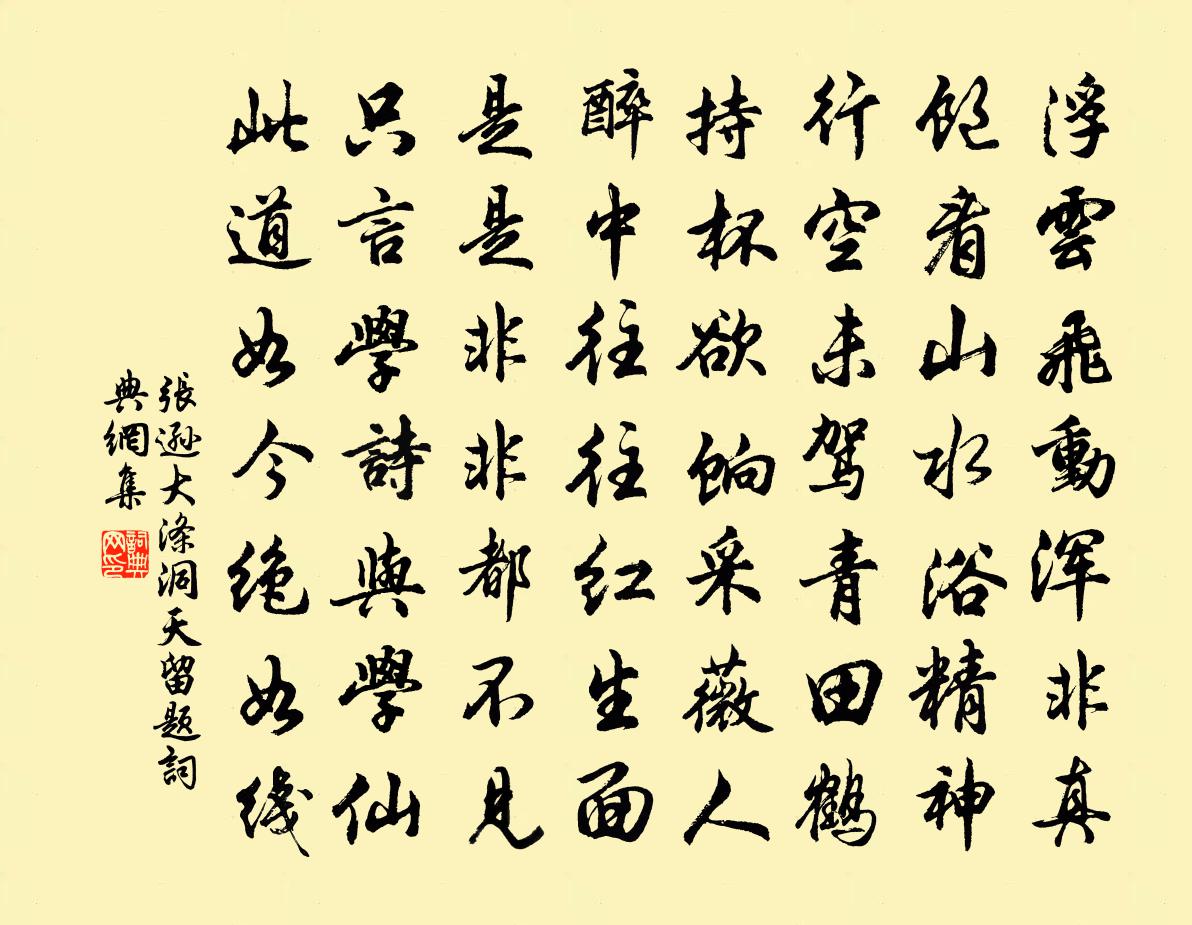 浮雲飛動浑非真
飽看山水浴精神
行空未駕青田鶴
持杯欲餉采薇人
醉中往往红生面
是是非非都不見
只言學詩與學仙
此道如今绝如綫
張遜大滌洞天留題詞
典網集
詞典
网印